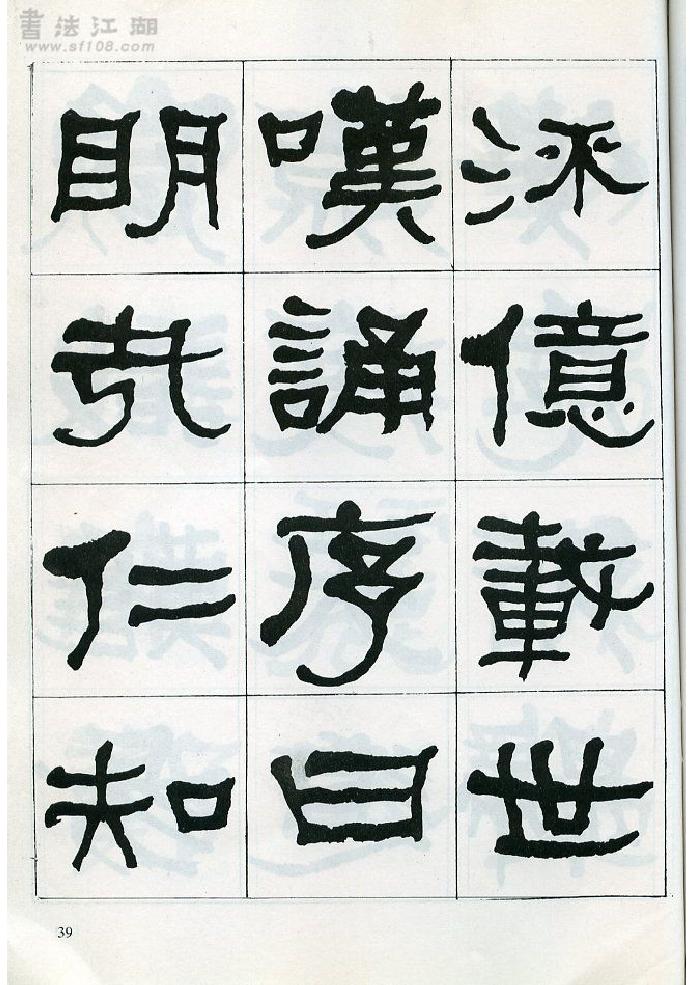 書法江湖
www.sf108.com
流億載世
嘆誦序曰
明哉仁知
39